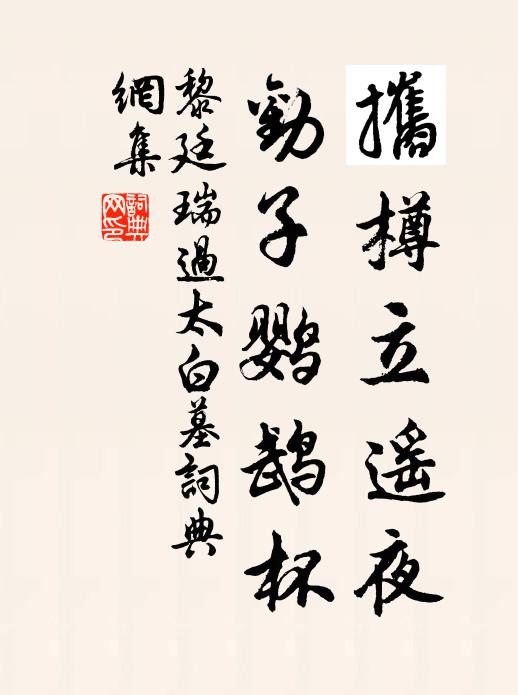 攜樽立遥夜
勸子鹦鹉杯
黎廷瑞過太白墓詞典
網集
詞典
网印